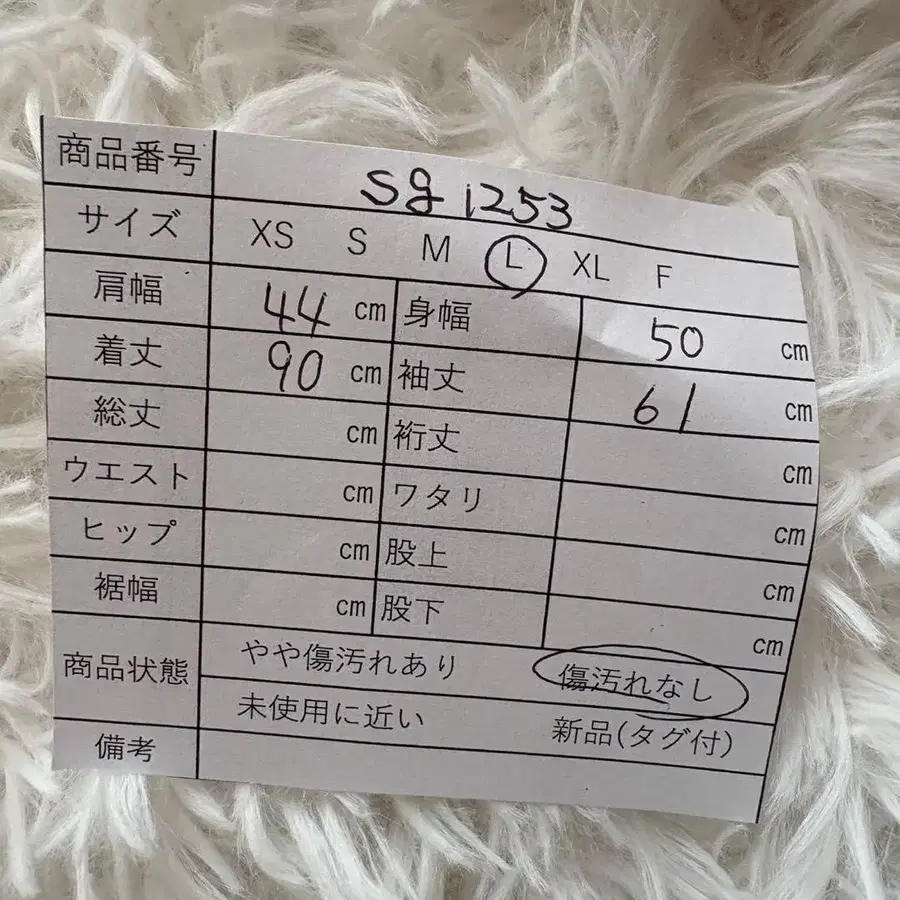 商品番号 sg 1253
サイズ XS S M L XL F
肩幅 44 cm 身幅 50 cm
着丈 90 cm 袖丈 61 cm
総丈 cm 裄丈 cm
ウエスト cm ワタリ cm
ヒップ cm 股上 cm
裾幅 cm 股下 cm
商品状態 やや傷汚れあり 傷汚れなし
未使用に近い 新品(タグ付)
備考